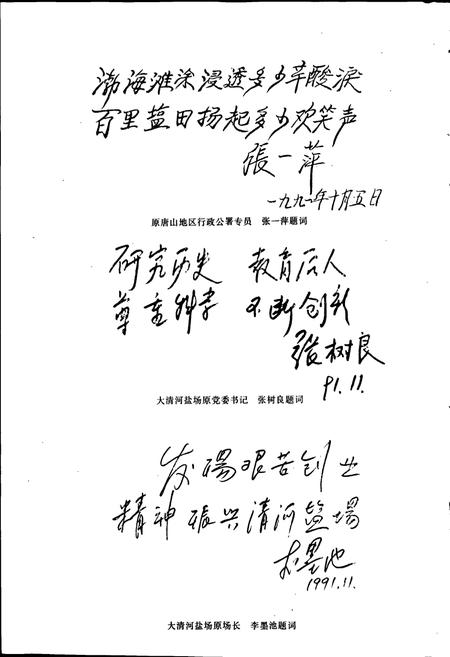 渤海滩涂浸透多少辛酸淚
百里盐田扬起多少欢笑声
張一萍
一九九一年十月五日
原唐山地区行政公署专员 张一萍题词
研究历史 教育后人
尊重科学 不断创新
張树良
91.11.
大清河盐场原党委书记 张树良题词
发揚艰苦创业
精神振兴清河盐場
李墨池
1991.11.
大清河盐场原场长 李墨池题词